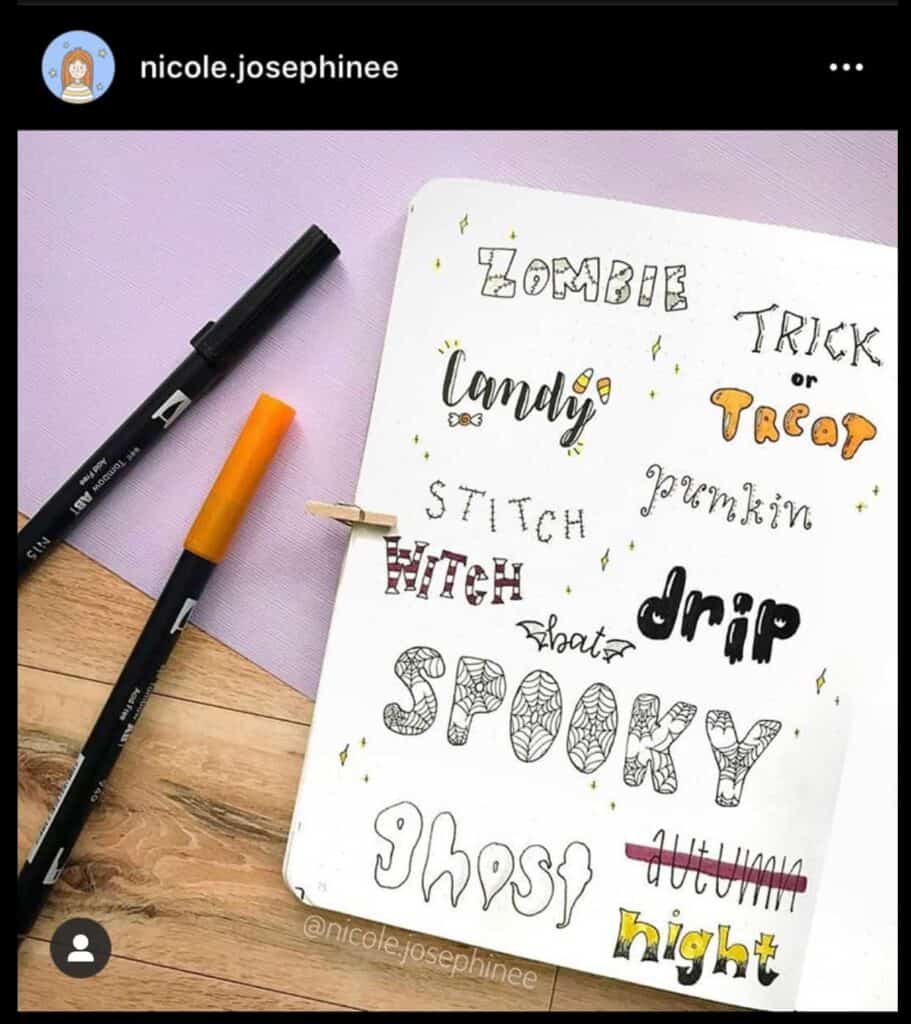 nicole.josephinee
ZOMBIE
TRICK
or
TREAT
Candy
pumkin
STITCH
WITCH
drip
bat
SPOOKY
ghost
autumn
night
@nicole.josephinee
Tombow ABT
Acid Free
N15
Tombow ABT
Acid Free